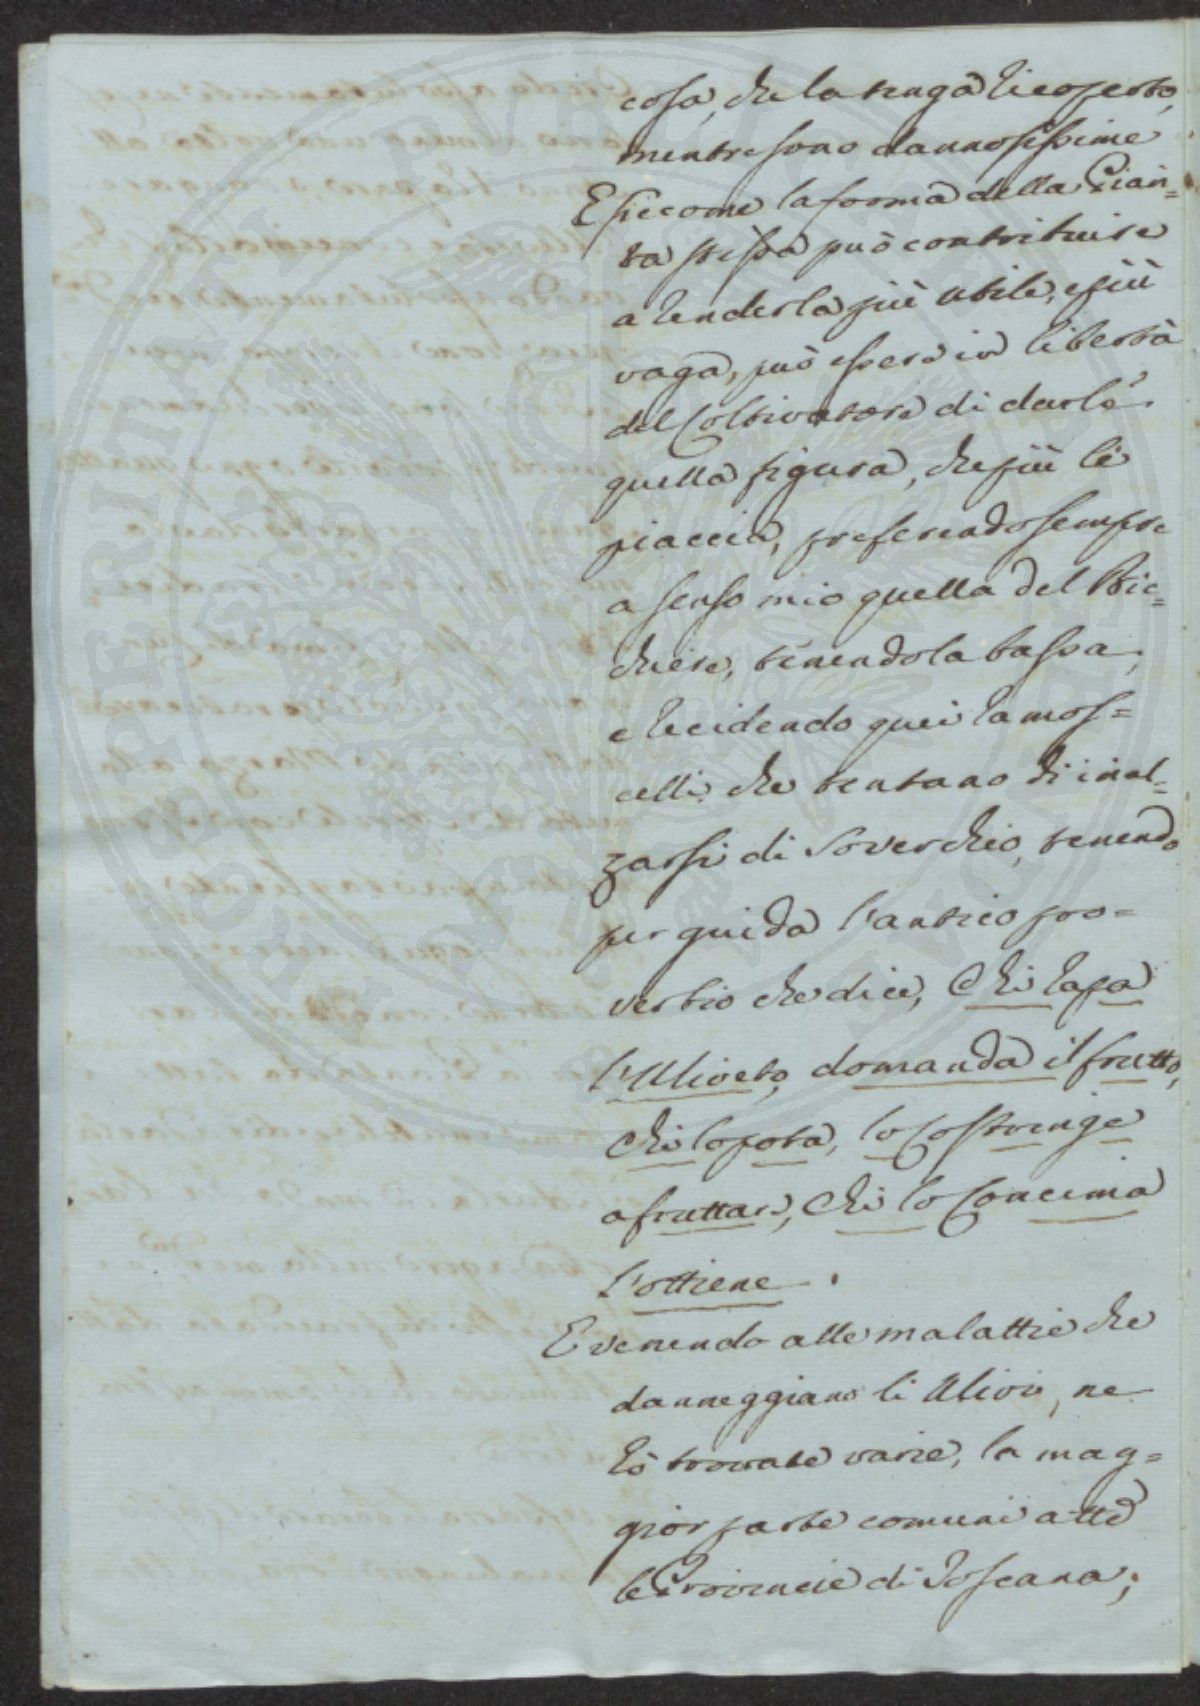 cosa, che la tenga ricoperta,
mentre sono dannosissime
E siccome la forma della Pian=
ta stessa può contribuire
a renderla più utile, e più
vaga, può essere in libertà
del Coltivatore di darle
quella figura, che più le
piaccia, preferendo sempre
a senso mio quella del Bic=
chiere, tenendola bassa,
e recidendo quei ramos=
celli che tentano di inal=
zarsi di soverchio, tenendo
per guida l'antico pro=
verbio che dice, Chi rapa
l'Uliveto, domanda il frutto,
Chi lo pota, lo Costringe
a fruttare, Chi lo Concima
l'ottiene.
E venendo alle malattie che
danneggiano li Ulivi, ne
hò trovate varie, la mag=
gior parte comuni a tte
le Provincie di Toscana;
PROSPERINATI PVBLICAE AVGENDAE